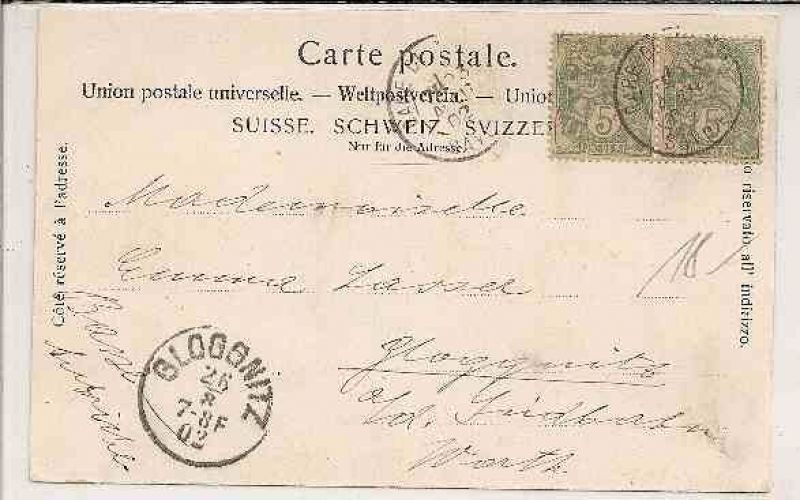 Carte postale.
Union postale universelle. — Weltpostverein. — Union
SUISSE. SCHWEIZ. SVIZZE
Nur für die Adresse.
5 5
Côté réservé à l'adresse.
riservato all' indirizzo.
Mademoiselle
Emma Lasser
Gloggnitz
a/d. Südbahn
Worth
GLOGGNITZ
26
8
7-8F
02